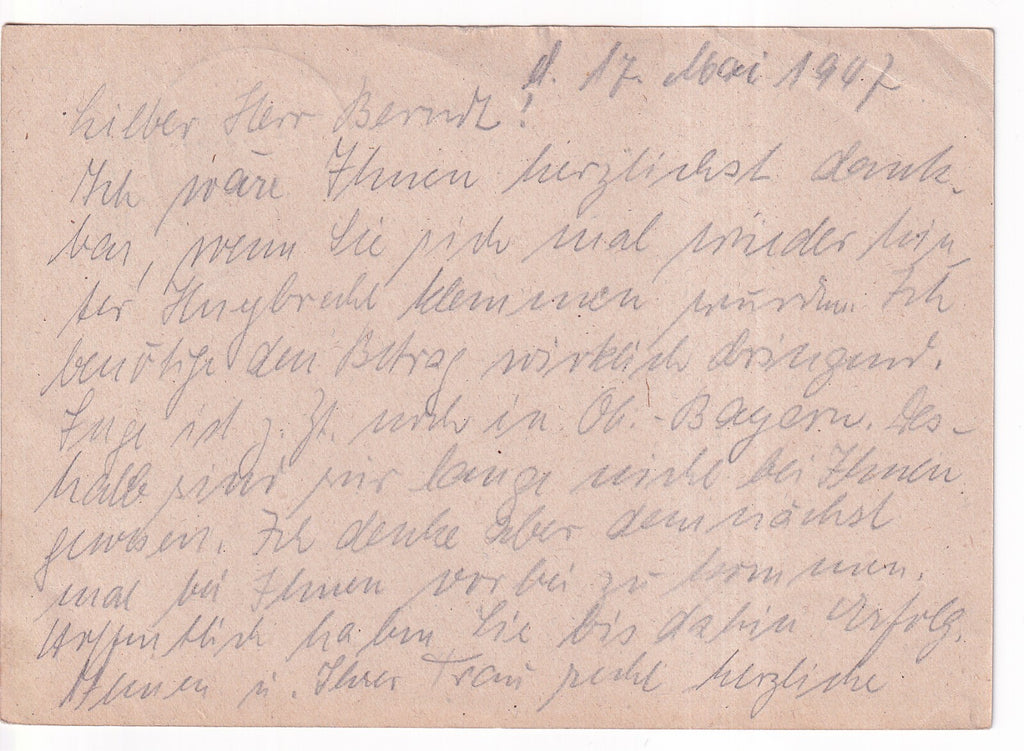 d. 17. Mai 1947
Lieber Herr Berndt!
Ich wäre Ihnen herzlichst dank-
bar, wenn Sie sich mal wieder hin-
ter Huybrecht klemmen würden. Ich
benötige den Betrag wirklich dringend.
Inge ist z. Zt. noch in Ob.-Bayern. Des-
halb sind wir lange nicht bei Ihnen
gewesen. Ich denke aber demnächst
mal bei Ihnen vorbei zu kommen.
Hoffentlich haben Sie bis dahin Erfolg.
Ihnen u. Ihrer Frau recht herzliche